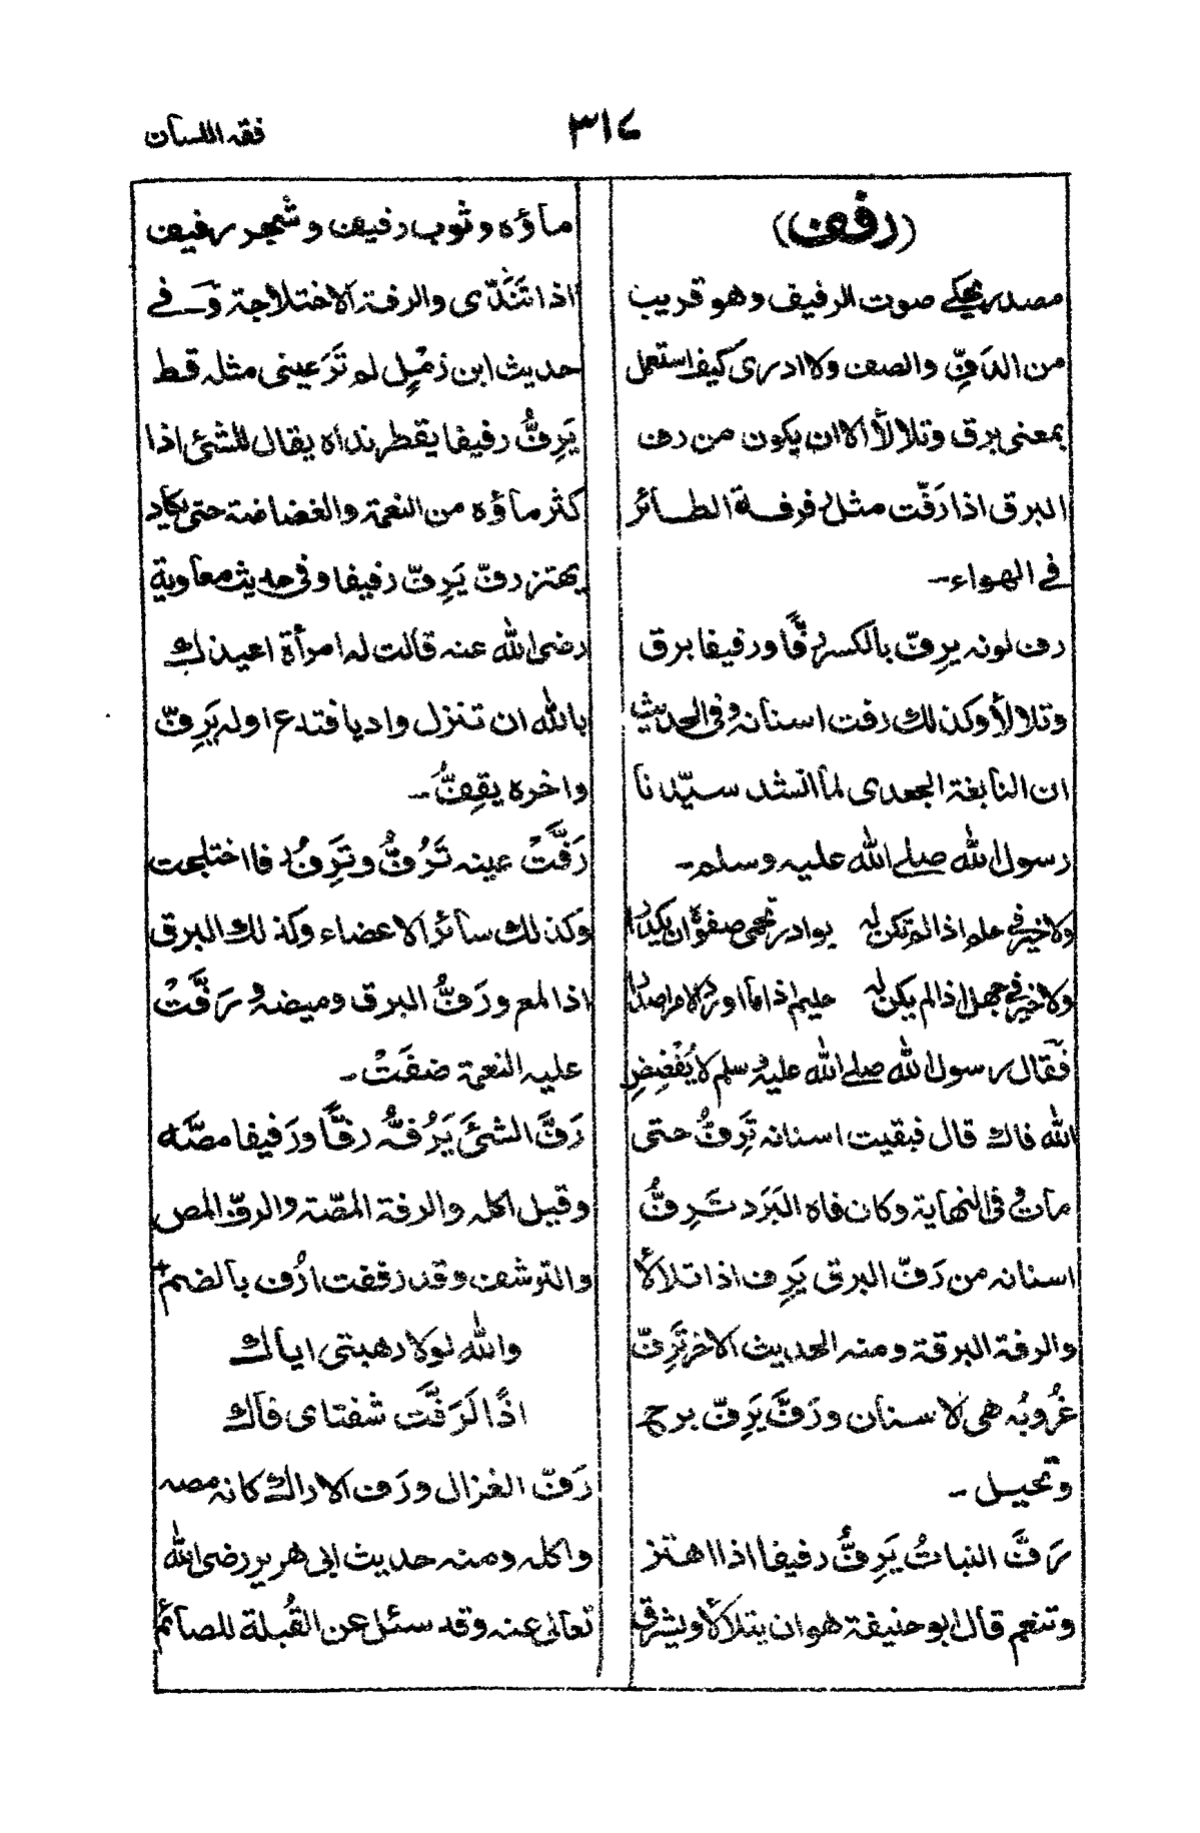 فقہ اللسان
٣١٤
(رفف)
مصدر یحکے صوت الرفیف وھو قریب
من الدَفِّ والصف ولا ادری کیف استعمل
بمعنی برق وتلالأ الا ان یکون من رف
البرق اذا رَفّت مثل رفرفة الطائر
فے الھواء۔
رف لونہ یرِفّ بالکسر رفًّا ورفیفا برق
وتلالأ وکذلک رفت اسنانہ وفی الحدیث
ان النابغۃ الجعدی لما انشد سیّدنا
رسول اللہ صلے اللہ علیہ وسلم۔
ولا خیر فے حلم اذا لم تکن لہ بوادر تحمی صفوہ ان یکدرا
ولا خیر فے جھل اذا لم یکن لہ حلیم اذا ما اورد الامر اصدرا
فقال رسول اللہ صلے اللہ علیہ وسلم لا یُفْضِضِ
اللہ فاک قال فبقیت اسنانہ تَرِفُّ حتی
مات وفی النھایۃ وکان فاہ البَرَد تَرِفُّ
اسنانہ من رَفّ البرق یَرِف اذا تلالأ
والرفۃ البرقۃ ومنہ الحدیث الاخر تَرِفّ
غُروبُہ ھی الاسنان ورَفَّ یَرِفّ برح
وتحیل۔
رَفَّ النباتُ یَرِفُّ رفیفا اذا اھتز
وتنعم قال ابو حنیفۃ ھو ان یتلالأ ویشرق
ماؤہ وثوب رفیف وشجر رفیف
اذا تَنَدّی والرفۃ الاختلاجۃ وَفے
حدیث ابن زِمْلٍ لم تَرَ عینی مثلہ قط
یَرِفُّ رفیفا یقطر نداہ یقال للشئ اذا
کثر ماؤہ من النعمۃ والغضاضۃ حتی یکاد
یھتز رفّ یَرِفّ رفیفا وفی حدیث معاویة
رضی اللہ عنہ قالت لہ امرأة اعیذک
باللہ ان تنزل وادیا فتدع اولہ یَرِفّ
واخرہ یقِفُّ۔
رَفَّتْ عینہ تَرُفُّ وتَرِفُّ رفا اختلجت
وکذلک سائر الاعضاء وکذلک البرق
اذا لمع ورَفُّ البرق ومیضہ ورَفَّتْ
علیہ النعمۃ ضفَتْ۔
رَفَّ الشئَ یَرُفُّہ رفًّا ورَفیفا مصَّہ
وقیل اکلہ والرفۃ المصّۃ والرفّ المص
والترشف وقد رففت ارُف بالضم
واللہ لولا رھبتی ایاک
اذًا لَرَفَّت شفتای فاک
رَفّ الغزال ورَف الاراک کانہ مصہ
واکلہ ومنہ حدیث ابی ھریر رضی اللہ
تعالی عنہ وقد سئل عن القُبلة للصائم